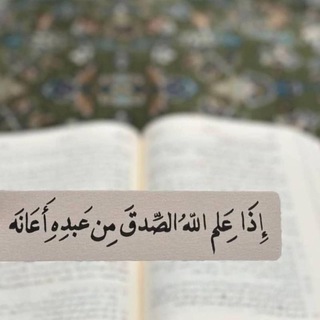 إِذَا عَلِم اللّهُ الصِّدقَ مِن عَبدِهِ أَعَانَه